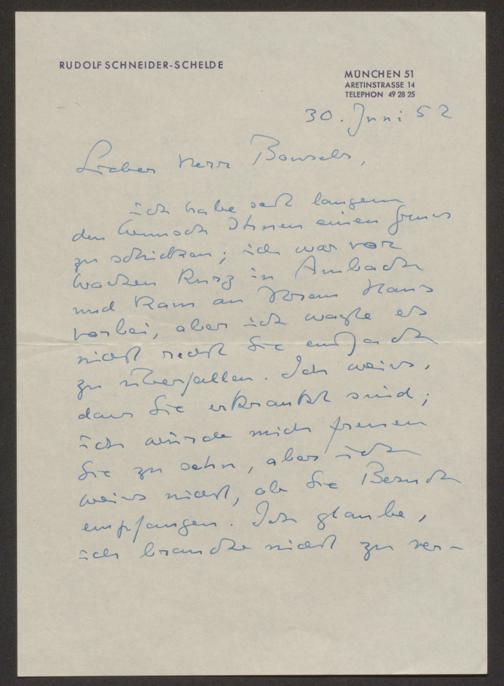 RUDOLF SCHNEIDER-SCHELDE
MÜNCHEN 51
ARETINSTRASSE 14
TELEPHON 49 28 25
30. Juni 52
Lieber Herr Bonsels,
ich habe seit langem
den Wunsch Ihnen einen Gruss
zu schicken; ich war vor
Wochen kurz in Ambach
und kam an Ihrem Haus
vorbei, aber ich wagte es
nicht recht Sie einfach
zu überfallen. Ich weiss,
dass Sie erkrankt sind;
ich würde mich freuen
Sie zu sehn, aber ich
weiss nicht, ob Sie Besuch
empfangen. Ich glaube,
ich brauche nicht zu ver-